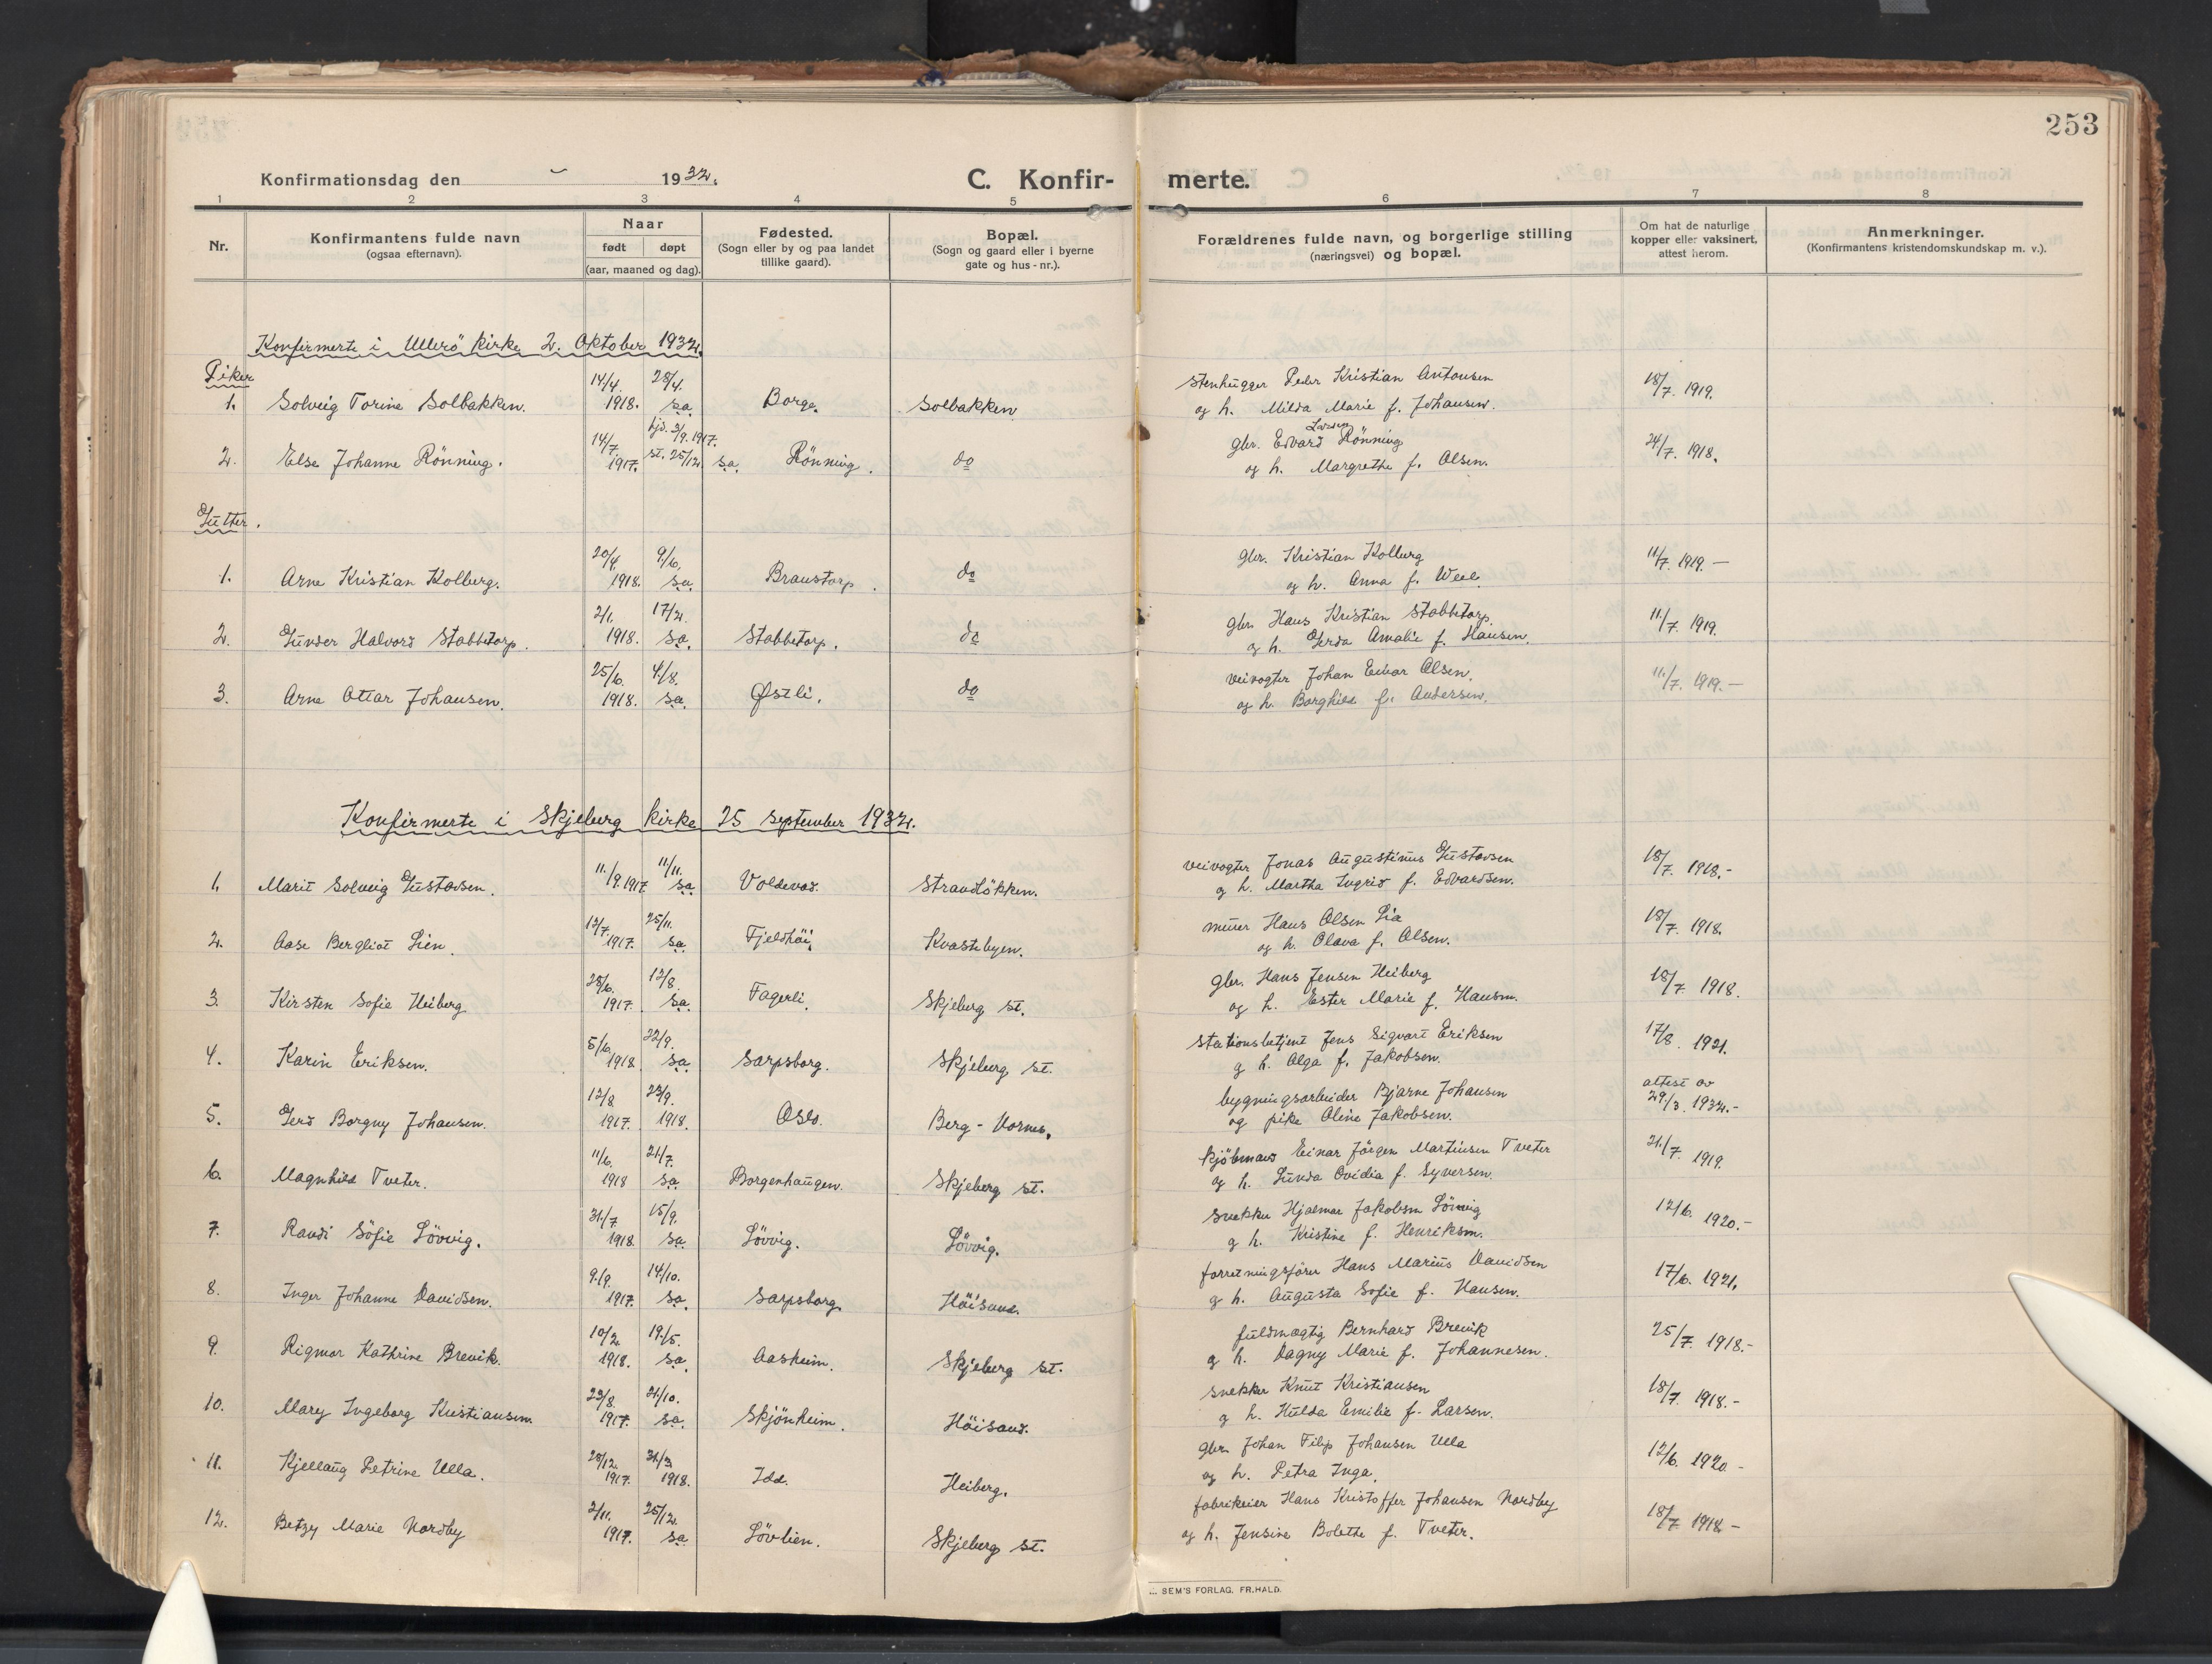 253
Konfirmationsdag den 1932.
C. Konfir- merte.
1 2 3 4 5 6 7 8
Nr.
Konfirmantens fulde navn
(ogsaa efternavn).
Naar
født døpt
(aar, maaned og dag).
Fødested.
(Sogn eller by og paa landet
tillike gaard).
Bopæl.
(Sogn og gaard eller i byerne
gate og hus-nr.).
Forældrenes fulde navn, og borgerlige stilling
(næringsvei) og bopæl.
Om hat de naturlige
kopper eller vaksinert,
attest herom.
Anmerkninger.
(Konfirmantens kristendomskundskap m. v.).
Konfirmerte i Ullerö kirke 2. Oktober 1932.
Piker
14/4. 28/4. stenhugger Peder Kristian Antonsen 18/7. 1919.
1. Solveig Torine Solbakken. 1918. sa. Borge. Solbakken og h. Milda Marie f. Johansen.
hjd. 3/9. 1917. Larsen
14/7. st. 25/12. gbr. Edvard Rönning 24/7. 1918.
2. Else Johanne Rönning. 1917. sa. Rönning. do og h. Margrethe f. Olsen.
Gutter.
20/4. 9/6. gbr. Kristian Kolberg 11/7. 1919.—
1. Arne Kristian Kolberg. 1918. sa. Braustorp. do og h. Anna f. Weel.
2/1. 17/2. gbr. Hans Kristian Stabbetorp. 11/7. 1919.
2. Gunder Halvord Stabbetorp. 1918. sa. Stabbetorp. do og h. Gerda Amalie f. Hansen.
25/6. 4/8. veivogter Johan Edvar Olsen. 11/7. 1919.—
3. Arne Ottar Johansen. 1918. sa. Østli. do og h. Borghild f. Andersen.
Konfirmerte i Skjeberg kirke 25 september 1932.
11./9. 1917 11/11. veivogter Jonas Augustinus Gustavsen 18/7. 1918.-
1. Marit Solveig Gustavsen. sa. Voldevad. Strandlökken. og h. Martha Ingrid f. Edvardsen.
12/7. 25/11. murer Hans Olsen Lia 18/7. 1918.
2. Aase Bergliot Lien. 1917. sa. Fjeldhöi. Kvastebyen. og h. Olava f. Olsen.
28/6. 12/8. gbr. Hans Jensen Heiberg 18/7. 1918.
3. Kirsten Sofie Heiberg 1917. sa. Fagerli. Skjeberg st. og h. Ester Marie f. Hansen.
5/6. 22/9. stationsbetjent Jens Sigvart Eriksen 17/8. 1921.
4. Karin Eriksen. 1918. sa. Sarpsborg. Skjeberg st. og h. Olga f. Jakobsen.
12/8 29/9. bygningsarbeider Bjarne Johansen attest av
5. Gerd Borgny Johansen. 1917. 1918. Oslo. Berg - Hornes. og pike Oline Jakobsen. 29/3. 1932.-
11/6. 21/7. kjöbmand Einar Jörgen Martinsen Tveter 21./7. 1919.
6. Magnhild Tveter. 1918 sa. Borgenhaugen. Skjeberg st. og h. Gunda Ovidia f. Syversen.
31/7 15/9. snekker Hjalmar Jakobsen Lövvig 12/6. 1920.-
7. Randi Sofie Lövvig. 1918. sa. Lövvig. Lövvig. og h. Kristine f. Henriksen.
9./9. 14/10. forretningsförer Hans Marius Davidsen 17/6. 1921.
8. Inger Johanne Davidsen. 1917. sa. Sarpsborg. Höisand. og h. Augusta Sofie f. Hansen.
10/2. 19./5. fuldmægtig Bernhard Brevik 25/7. 1918.-
9. Rigmor Kathrine Brevik. 1918. sa. Aasheim. Skjeberg st. og h. Dagny Marie f. Johannesen.
23/8. 21/10. snekker Knut Kristiansen 18/7. 1918.-
10. Mary Ingeborg Kristiansen 1917. sa. Skjönheim. Höisand. og h. Hulda Emilie f. Larsen.
28/12. 31/3. gbr. Johan Filip Johansen Ulla 12/6. 1920 -
11. Kjellaug Petrine Ulla. 1917. 1918. Idd. Heiberg. og h. Petra Inga.
2/11. 25/12. fabrikeier Hans Kristoffer Johansen Nordby 18/7. 1918 -
12. Betzy Marie Nordby 1917. sa. Lövlien. Skjeberg st. og h. Jensine Bolette f. Tveter.
SEM'S FORLAG. FR.HALD.